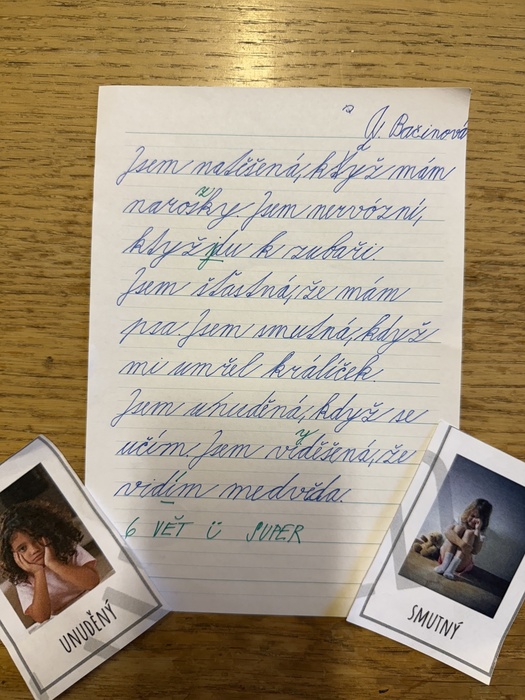 V. Bačinová
Jsem natěšená, když mám
narošky Jsem nervózní,
z
když jdu k zubaři
Jsem šťastná, že mám
psa Jsem smutná, když
mi umřel králíček.
Jsem unuděná, když se
učím. Jsem viděšená, že
y
vidím medvěda.
6 VĚT Ü SUPER
UNUDĚNÝ
SMUTNÝ